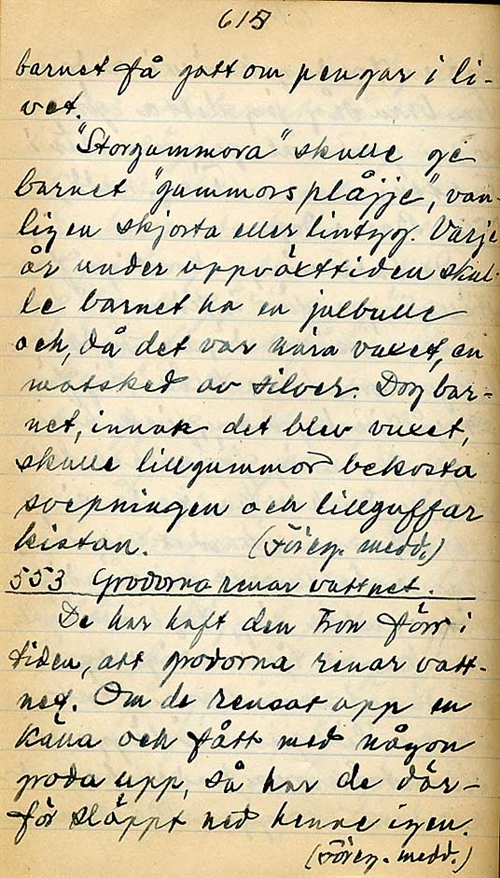 615
barnet få gott om pengar i li-
vet.
"Storgummora" skulle ge
barnet "gummorsplåjje", van-
ligen skjorta eller lintyg. Varje
år under uppväxttiden skul-
le barnet ha en julbulle
och, då det var nära vuxet, en
matsked av silver. Dog bar-
net, innan det blev vuxet,
skulle lillgummor bekosta
svepningen och lillguffar
kistan. (Föreg. medd.)
553 Grodorna renar vattnet.
De har haft den tron förr i
tiden, att grodorna renar vatt-
net. Om de rensat upp en
källa och fått med någon
groda upp, så har de där-
för släppt ned henne igen.
(Föreg. medd.)